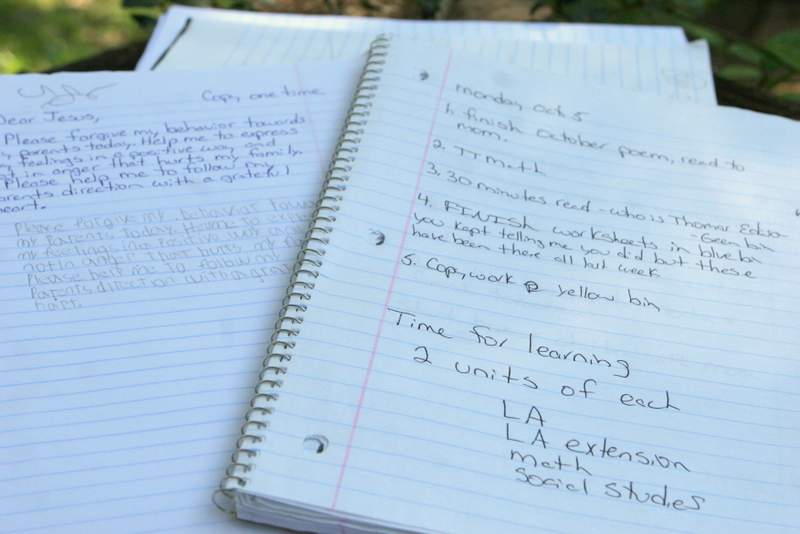 Copy one time
Dear Jesus,
Please forgive my behavior towards
parents today. Help me to express
feelings in a positive way and
not in anger that hurts my family.
Please help me to follow my
parents direction with a grateful
heart.
Please forgive my behavior
my Parents today. Help me to
my feelings in a Positive way
not in anger that hurts my
Please help me to follow my
Parents direction with a
hart.
monday oct 5
1. finish October poem, read to
mom.
2. TT math
3. 30 minutes read - who is Thomas
Green bin
4. FINISH worksheets in blue bin
you kept telling me you did but these
have been there all last week
5. Copywork yellow bin
Time for learning
2 units of each
LA
LA extension
math
Social Studies